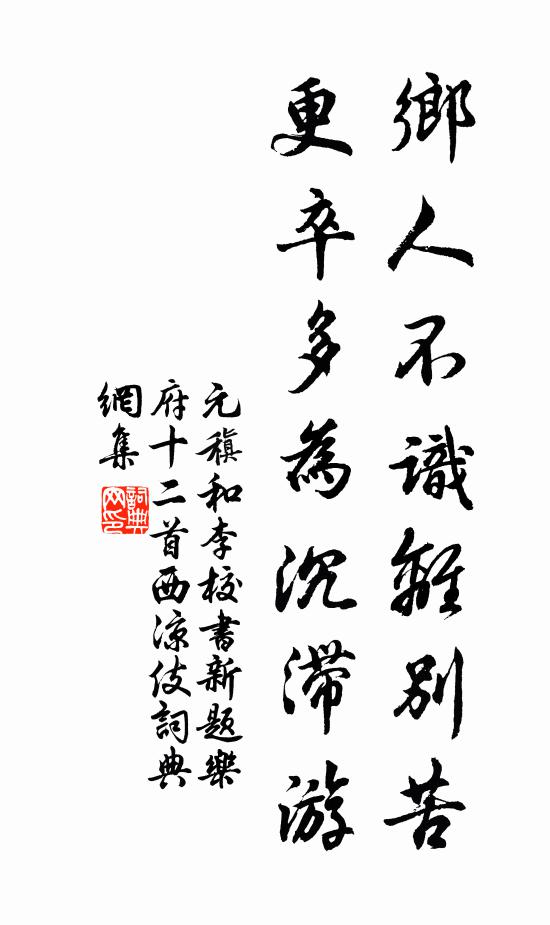 鄉人不識離別苦
更卒多為沉滯游
元稹和李校書新題樂
府十二首西涼伎詞典
網集
詞典
网印